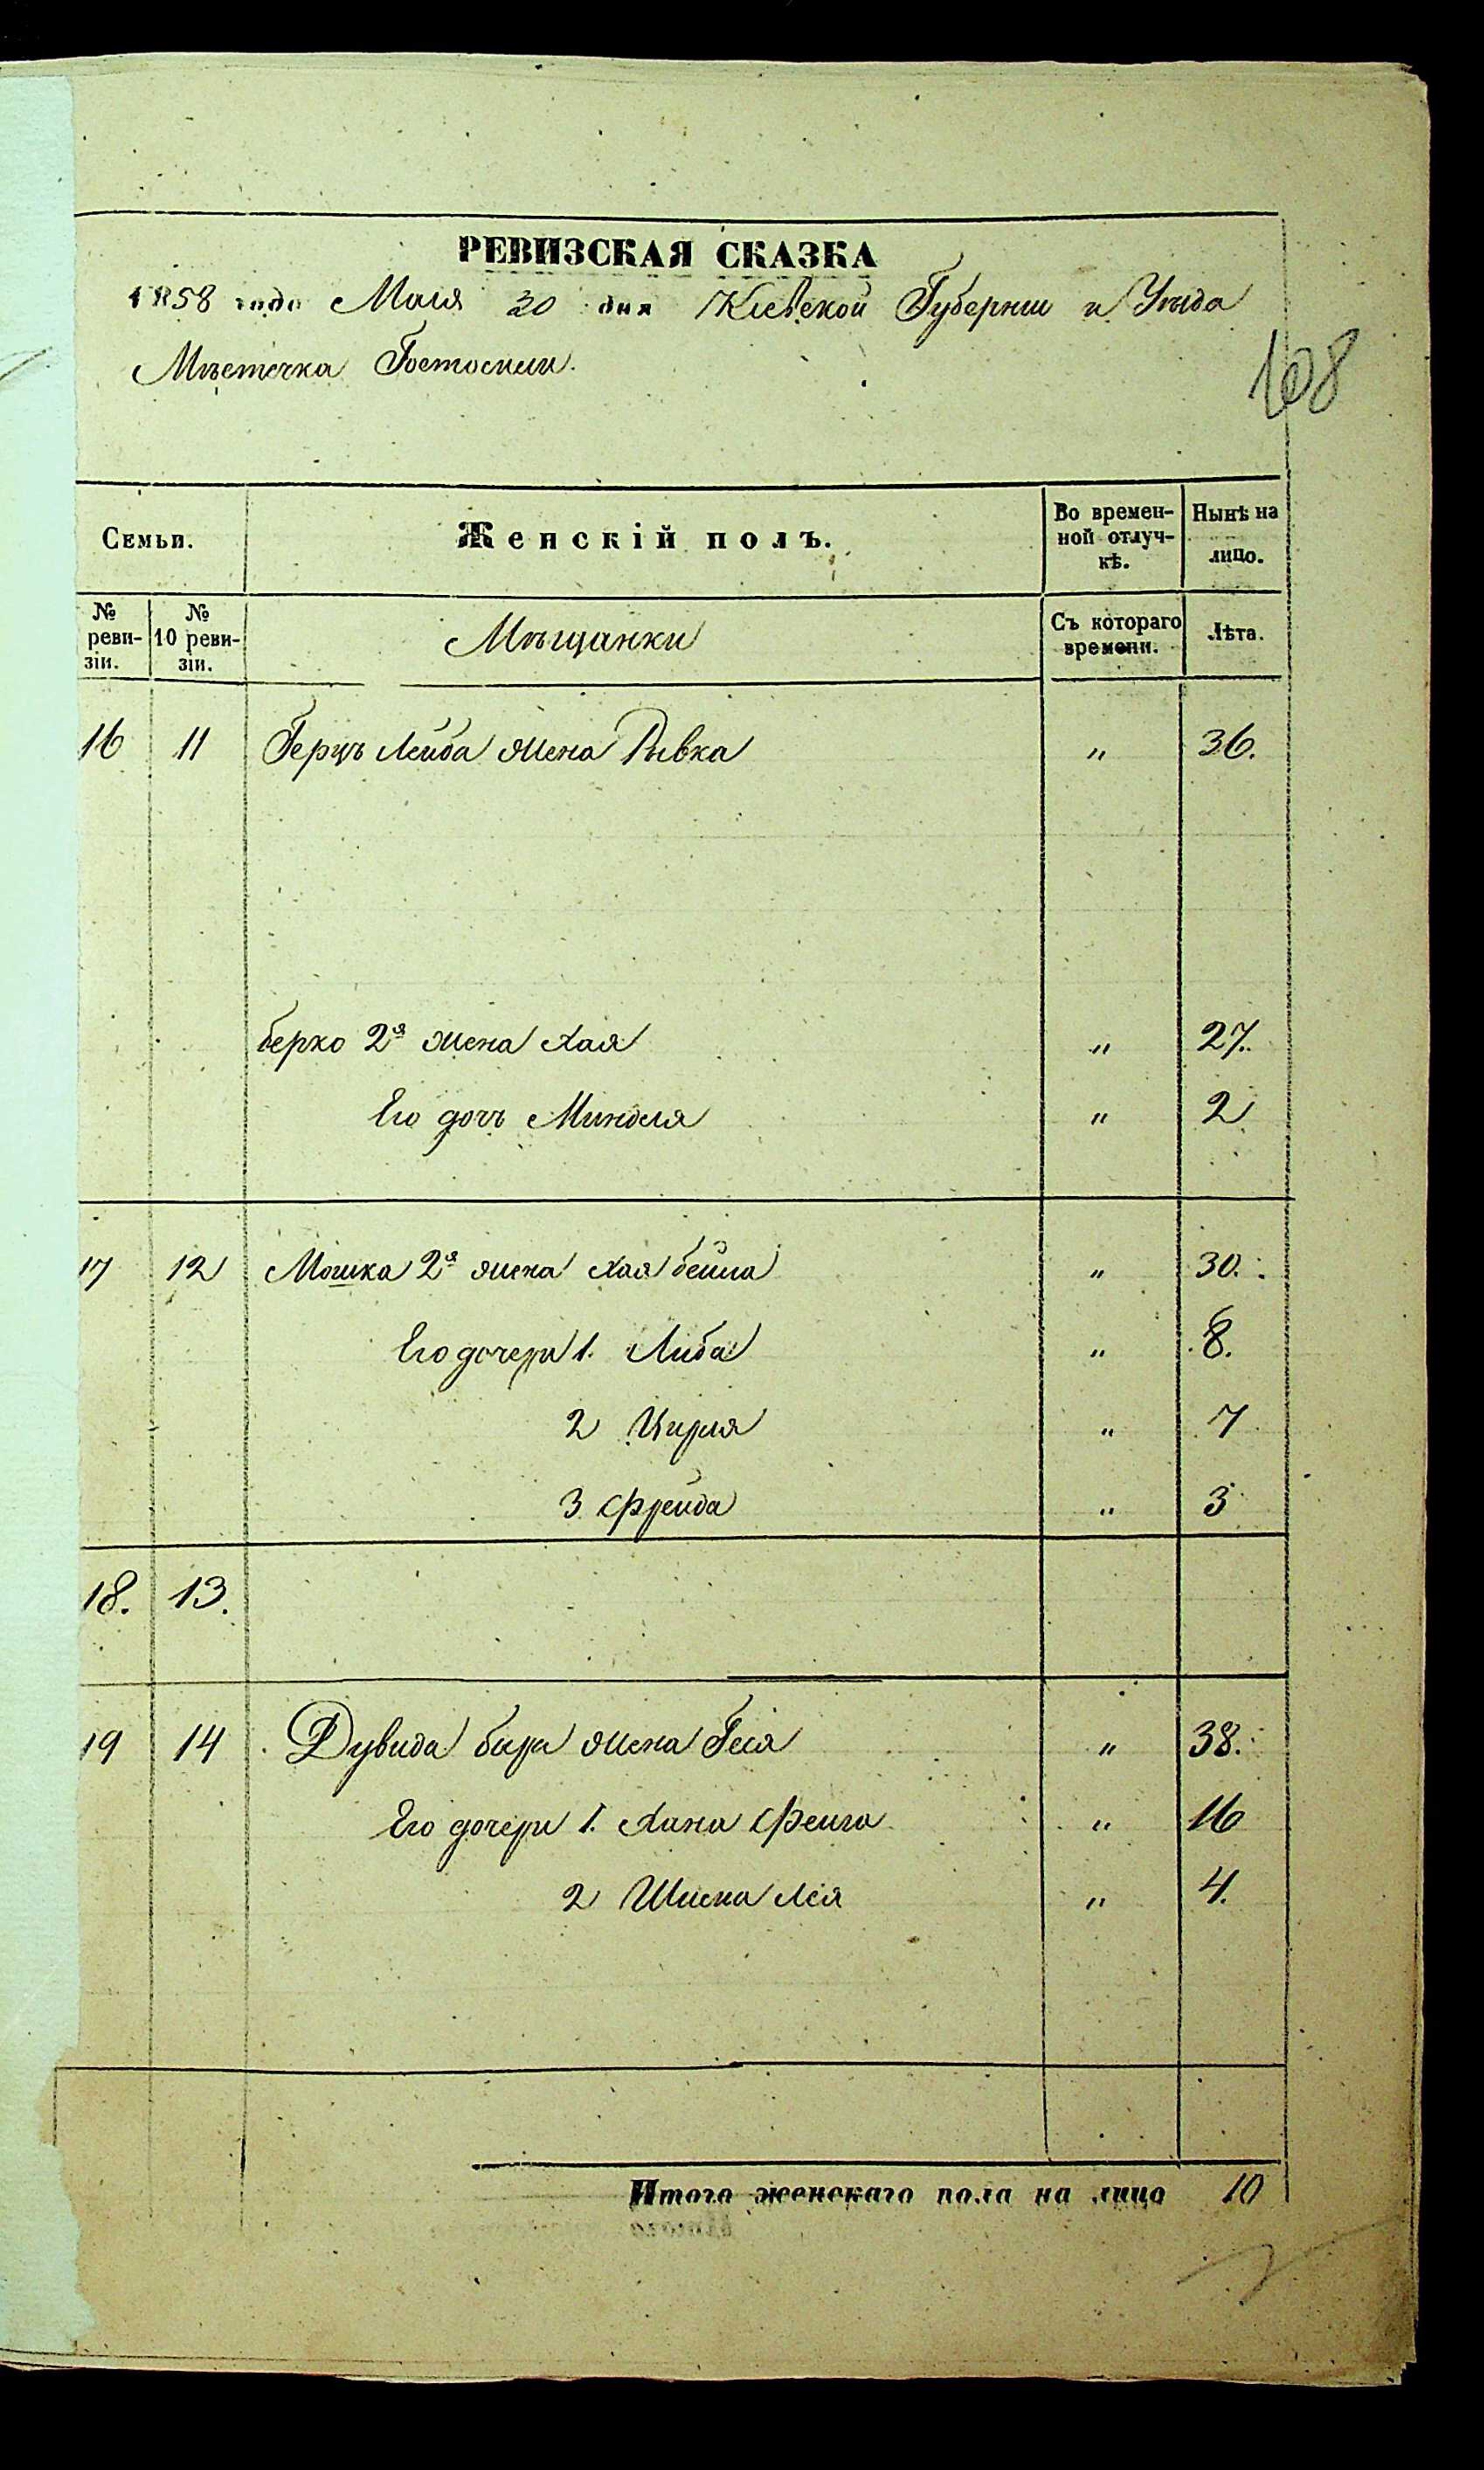 РЕВИЗСКАЯ СКАЗКА
1858 года Мая 30 дня Кіевской Губерніи и Уѣзда
Мѣстечка Гостомеля.
108
Семьи.
Женскій полъ.
Во времен-
ной отлуч-
кѣ.
Нынѣ на
лицо.
№
реви-
зіи.
№
10 реви-
зіи.
Мѣщанки
Съ котораго
времени.
Лѣта.
16 11 Герцъ Лейба жена Рывка " 36.
Берко 2я жена Хая " 27.
Его дочь Миндля " 2
17 12 Мошка 2я жена Хая Бейла " 30.
Его дочери 1. Либа " 8.
2 Цирля " 7
3 Фрейда " 3
18. 13.
19 14 Дувида Бера жена Геся " 38.
Его дочери 1. Хана Фейга " 16
2 Лея " 4.
Итого женскаго пола на лицо 10